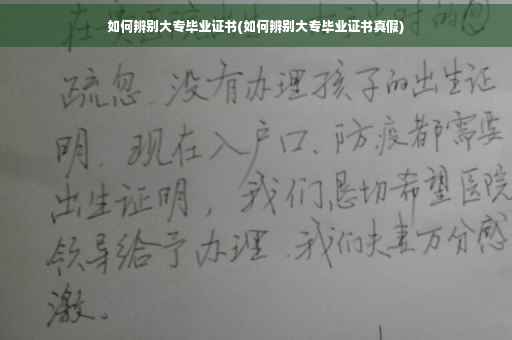 如何辨别大专毕业证书(如何辨别大专毕业证书真假)
在 时的
疏忽、没有办理孩子的出生证
明、现在入户口、防疫都需要
出生证明，我们恳切希望医院
领导给予办理、我们夫妻万分感
激。